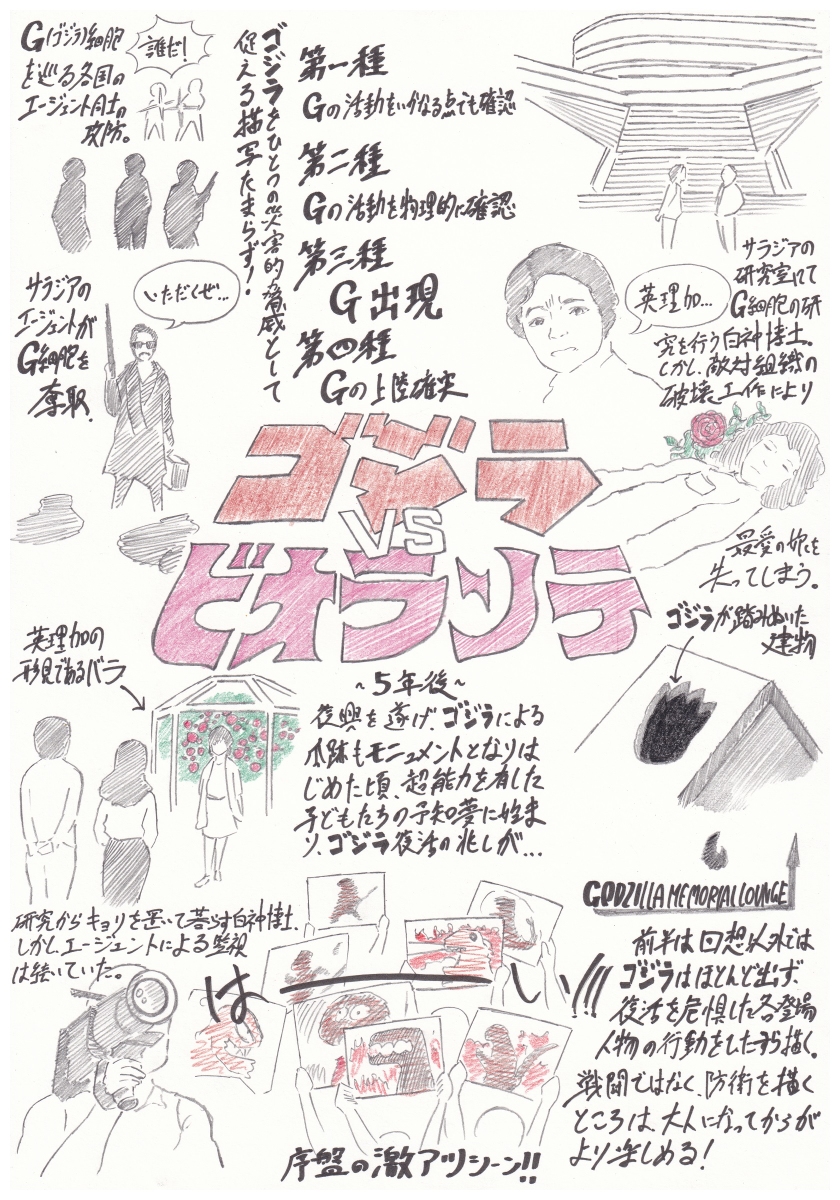 G(ゴジラ)細胞
を巡る各国の
エージェント同士の
攻防。
誰だ!
ゴジラをひとつの災害的脅威として
捉える描写たまらず!
第一種
Gの活動をいかなる点でも確認
第二種
Gの活動を物理的に確認
第三種
G出現
第四種
Gの上陸確実
サラジアの
エージェントが
G細胞を
奪取。
いただくぜ…
英理加…
サラジアの
研究室にて
G細胞の研
究を行う白神博士。
しかし、敵対組織の
破壊工作により
最愛の娘を
失ってしまう。
ゴジラ
VS
ビオランテ
英理加の
形見であるバラ
~5年後~
復興を遂げ、ゴジラによる
爪跡もモニュメントとなりは
じめた頃、超能力を有した
子どもたちの予知夢に始ま
り、ゴジラ復活の兆しが…
ゴジラが踏みぬいた
建物
GODZILLA MEMORIAL LOUNGE
研究からキョリを置いて暮らす白神博士。
しかし、エージェントによる監視
は続いていた。
はーーい!!!
序盤の激アツシーン!!
前半は回想以外では
ゴジラはほとんど出ず、
復活を危惧した各登場
人物の行動をひたすら描く。
戦闘ではなく、防衛を描く
ところは、大人になってからが
より楽しめる!